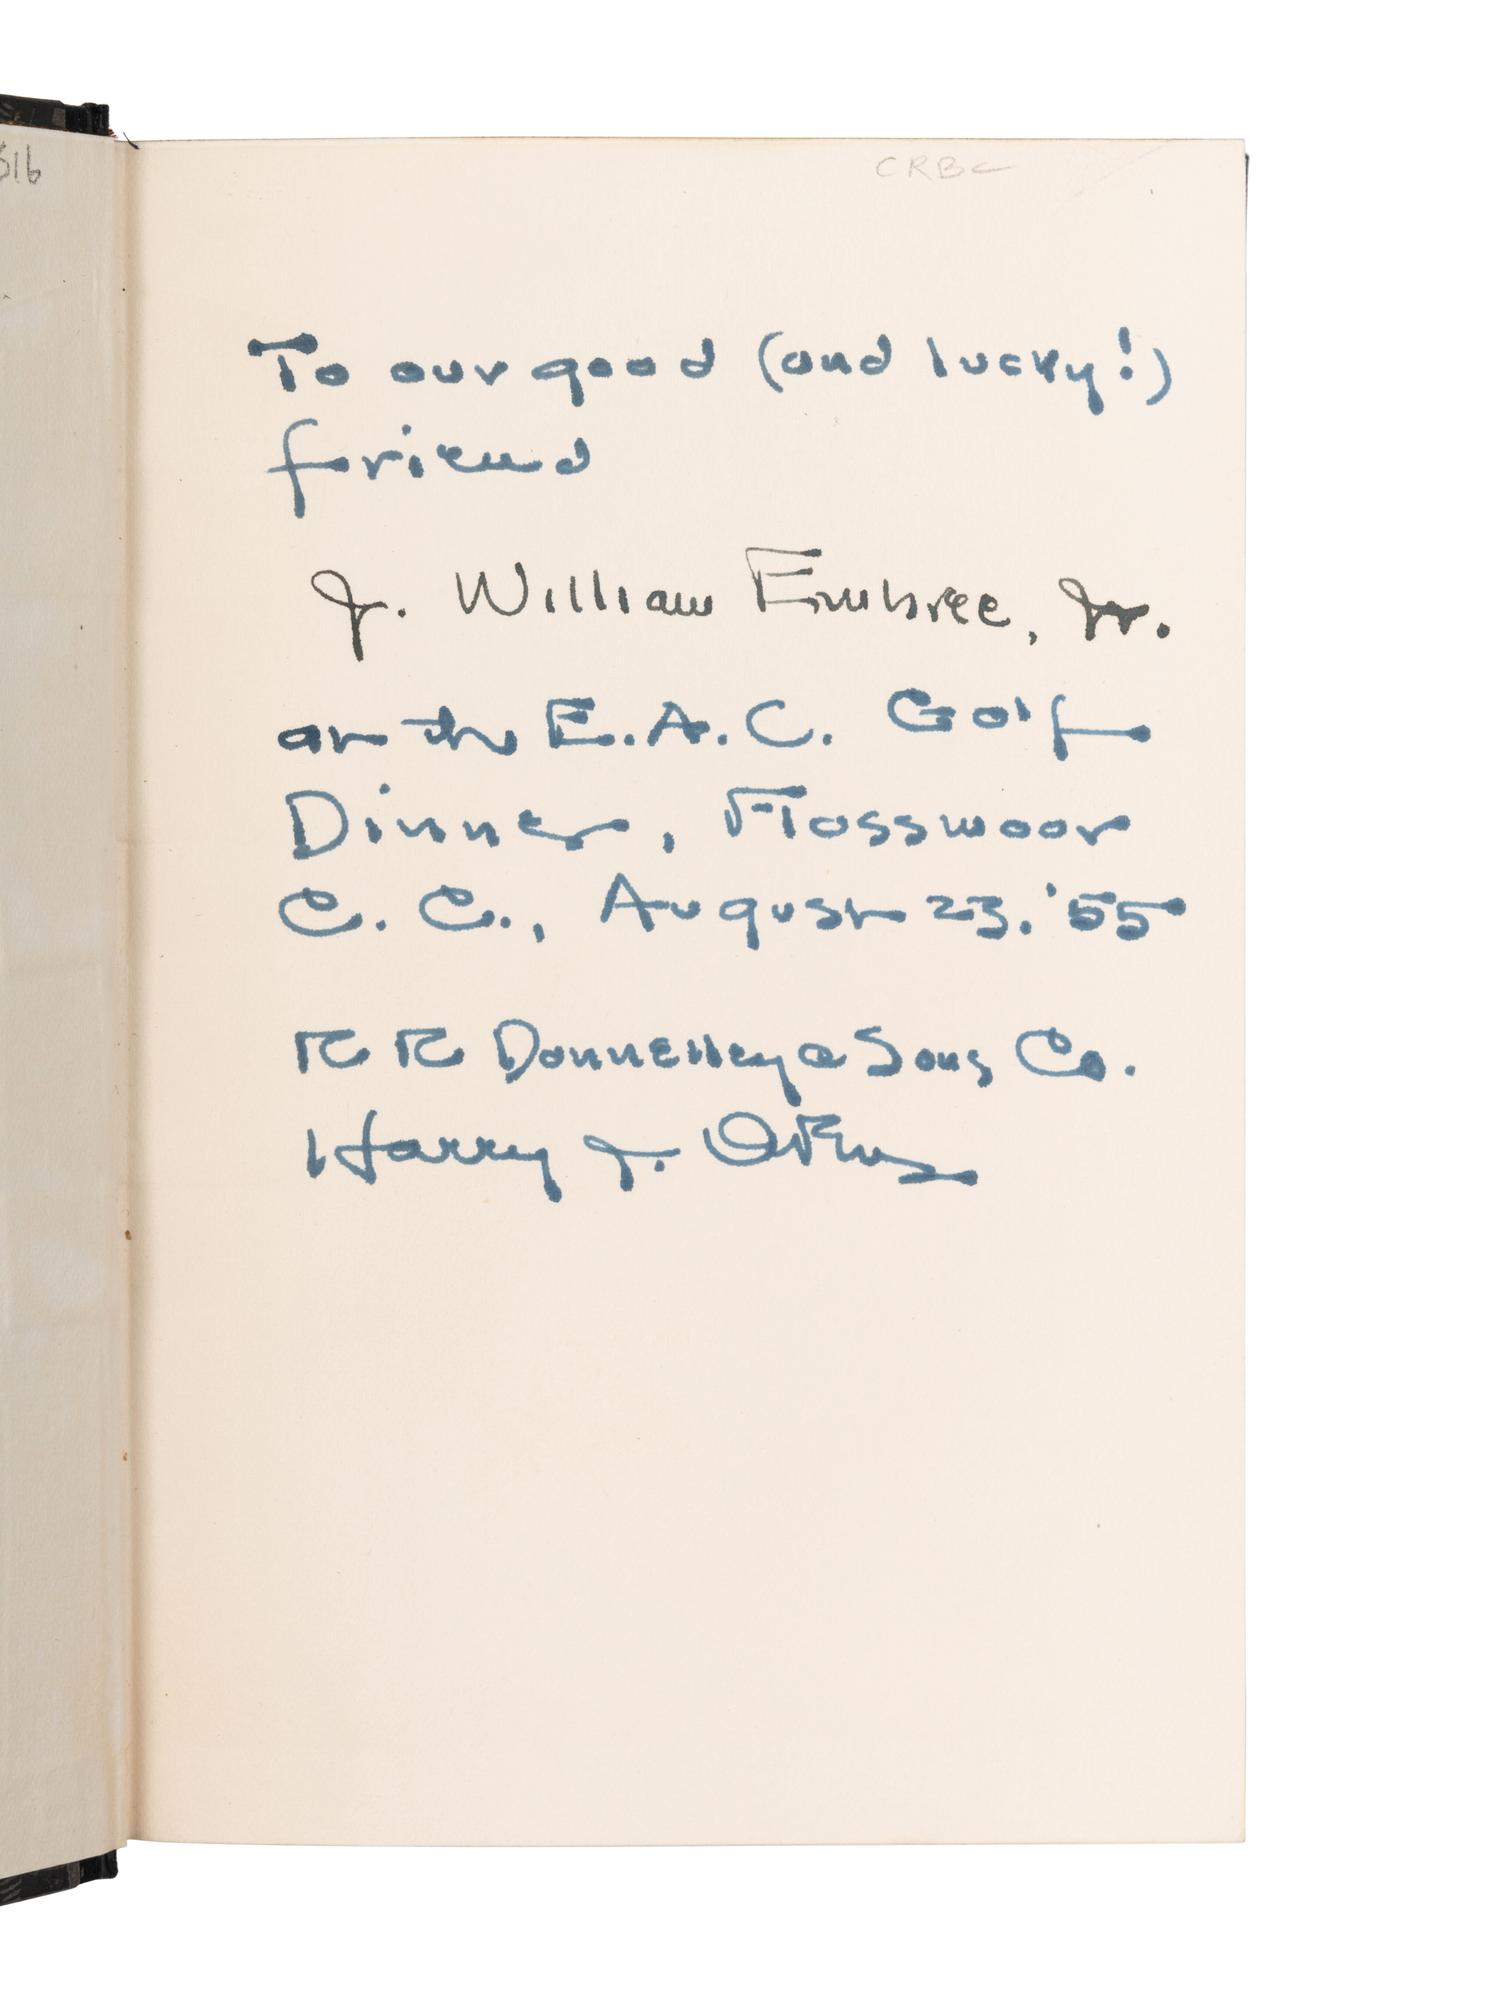 316
CRBC
To our good (and lucky!)
friend
J. William Embree, Jr.
at the E.A.C. Golf
Dinner, Flossmoor
C. C., August 23, '55
R R Donnelley & Sons Co.
Harry J.